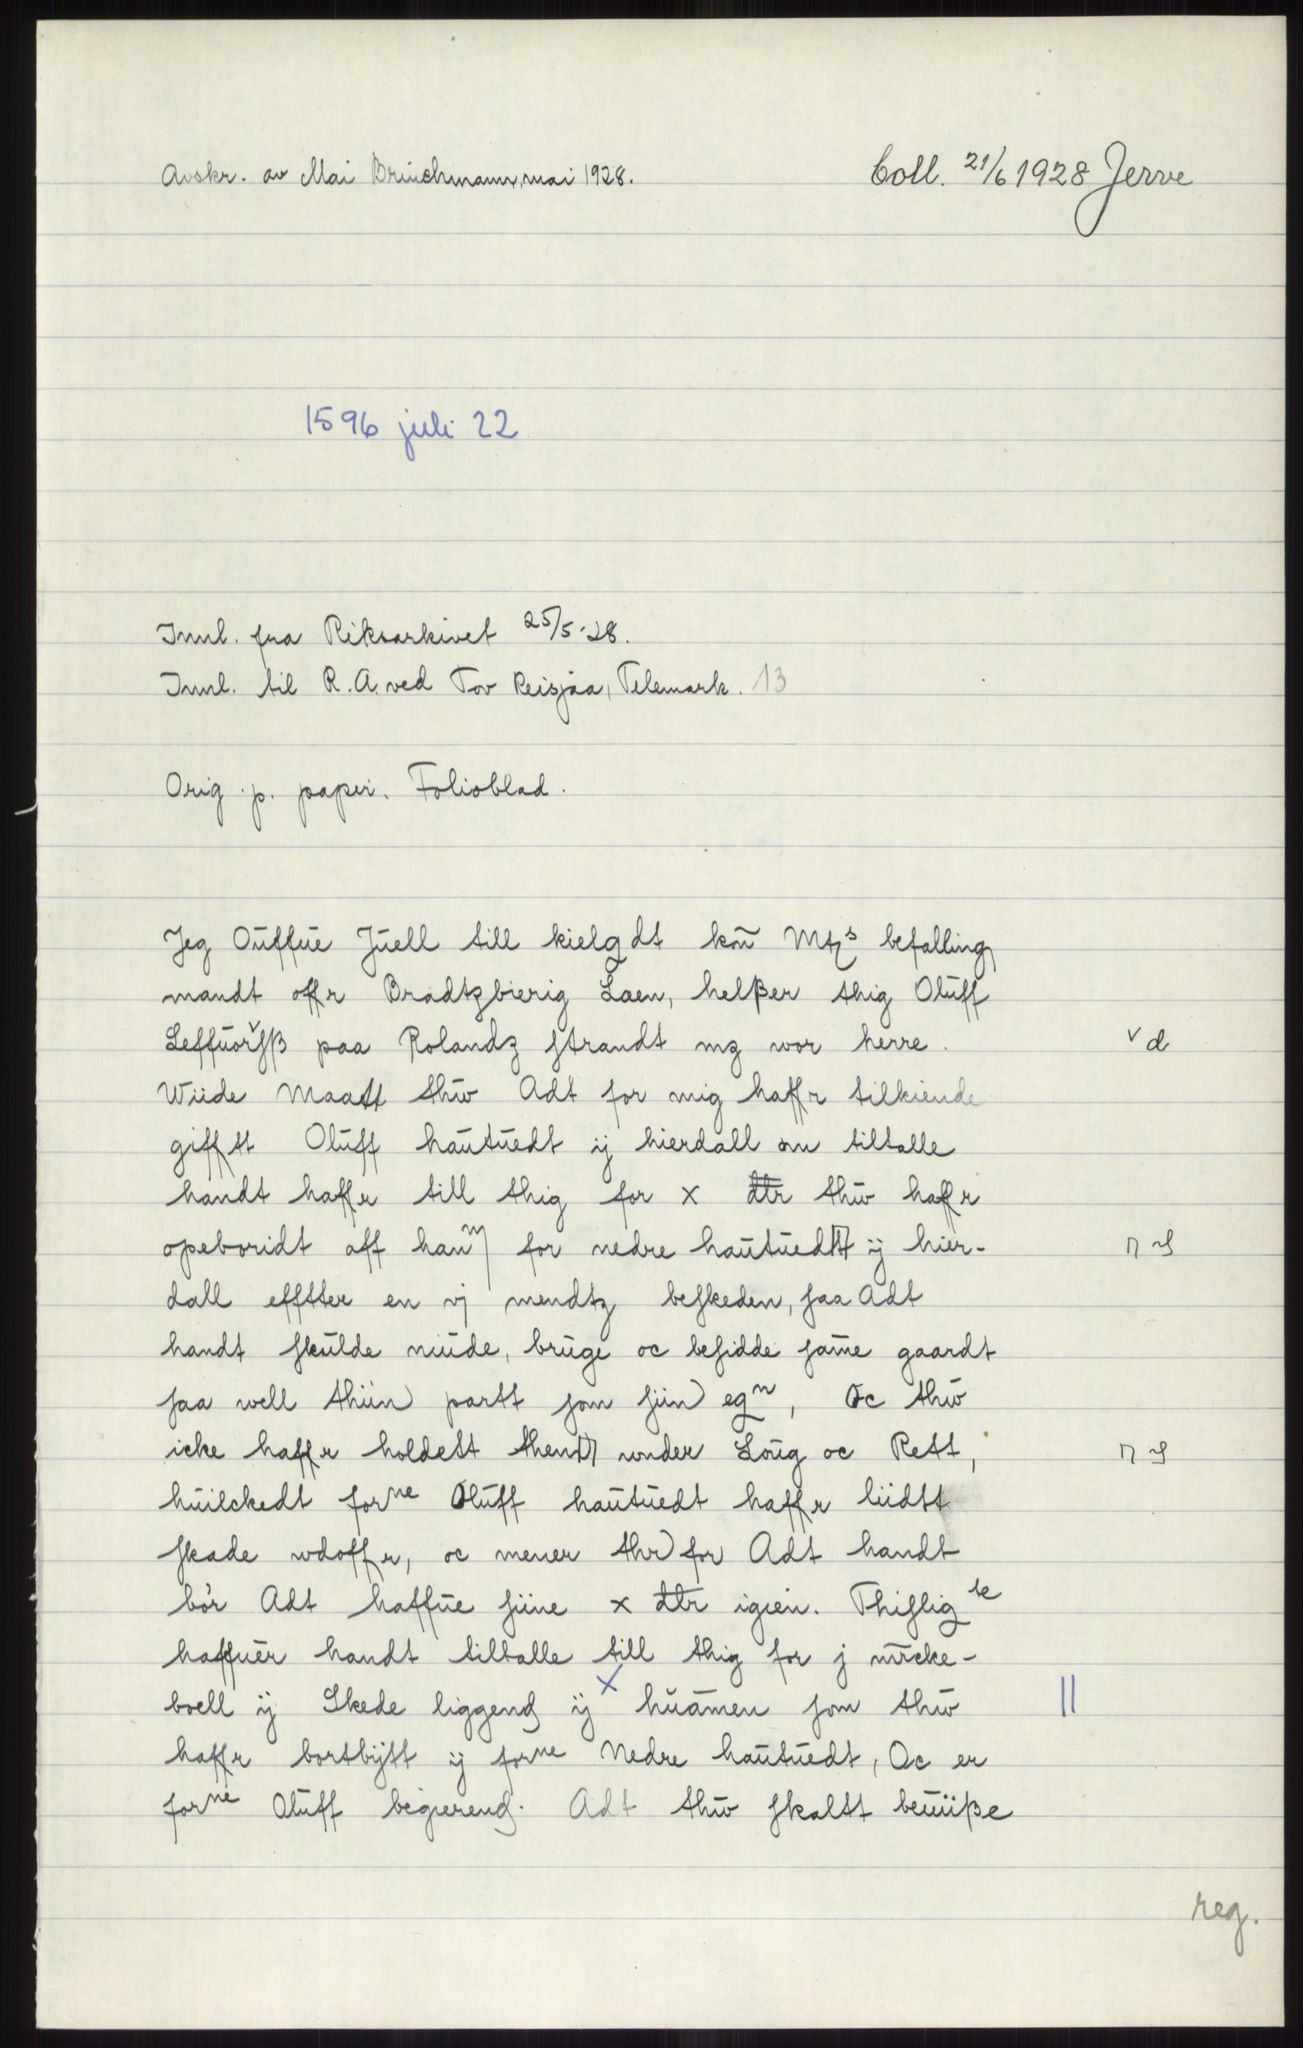 Avskr. av Mai Brinchmann, mai 1928.
Coll. 21/6 1928 Jerve
1596 juli 22
Innl. fra Riksarkivet 25/5-28.
Innl. til R.A. ved Tov Reisjaa, Telemark. 13
Orig. p. papir. Folioblad.
Jeg Ouffue Juell till kielgdt kōn Mtz befalling
mandt offr Bradtzbierig Laen, helßer thig Oluff
Leffuorſß paa Rolandz ſtrandt mz wor herre. v d
Wiide Maatt thw Adt for mig haffr tilkiende
gifftt Oluff hautuedt ÿ hierdall om tiltalle
handt haffr till thig for x dlr thw haffr
opeboridt aff hanm for nedre hautuedtt ÿ hier-
dall efftter en vj mendtz beſkeden, ſaa Adt
handt ſkulde niude, bruge oc beſidde ſame gaardt
ſaa well thiin partt ſom ſiin egn, Oc thw
icke haffr holdett thend under Loug oc Rett,
huilckedt forne Oluff hautuedt haffr liidtt
ſkade udoffr, oc mener thr for Adt handt
bör Adt haffue ſiine x dlr igien. Thiſligte
haffuer handt tiltalle till thig for j
boell ÿ Skede liggend ÿ x huamen ſom thw ||
haffr bortbÿtt ÿ forne Nedre hautuedt, Oc er
forne Oluff begierend. Adt thw ſkaltt beuiiße
reg.